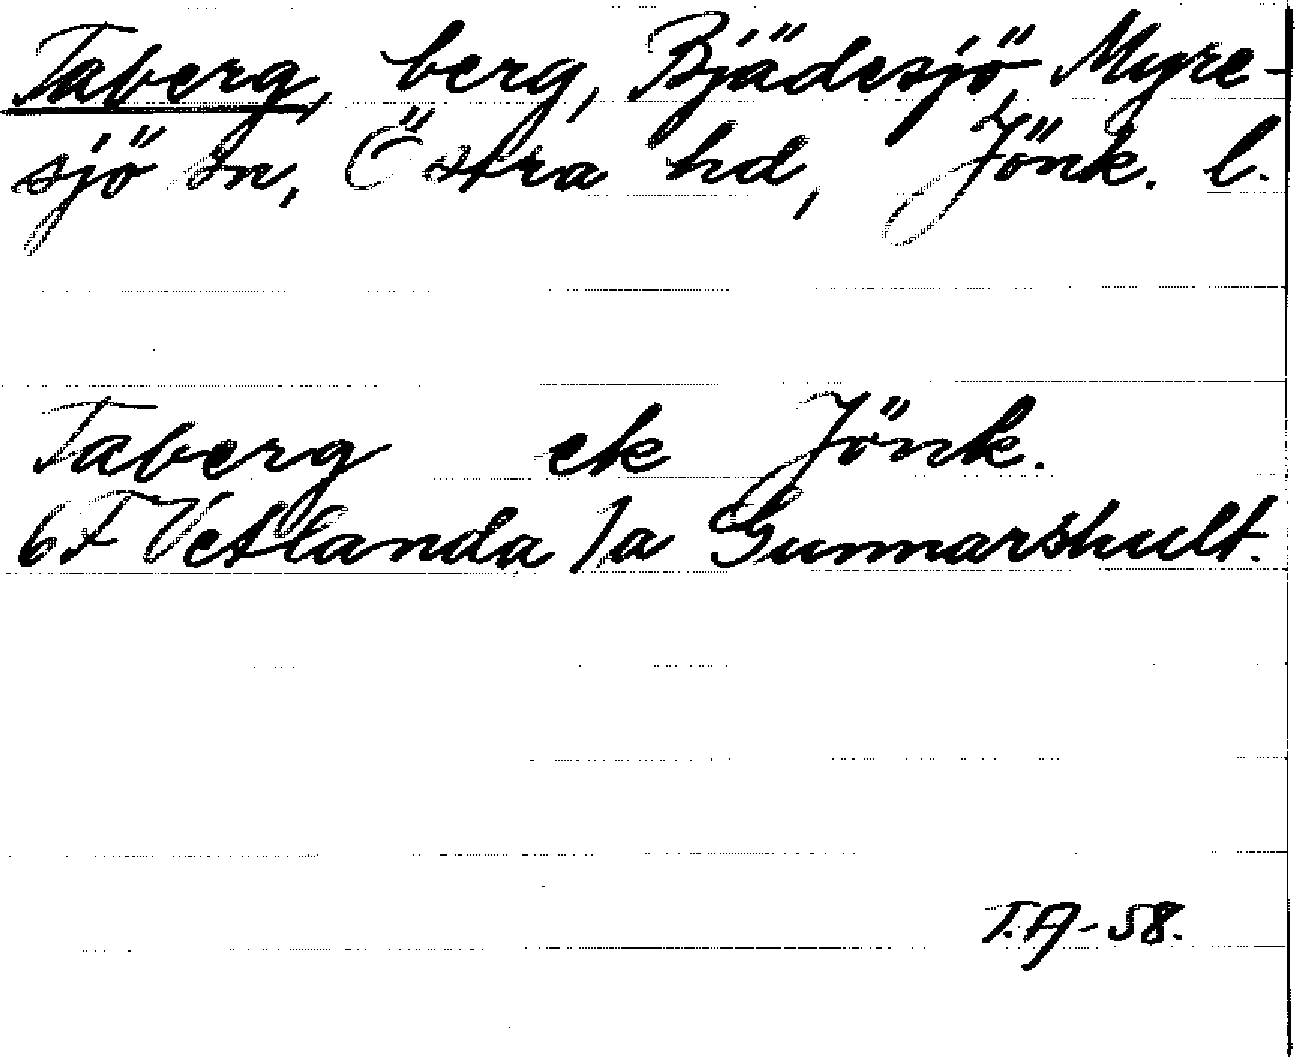 Taberg, berg, Bjädesjö, Myre-
sjö sn, Östra hd, Jönk. l.
Taberg ek Jönk.
6F Vetlanda 1a Gunnarshult.
T.A-58.